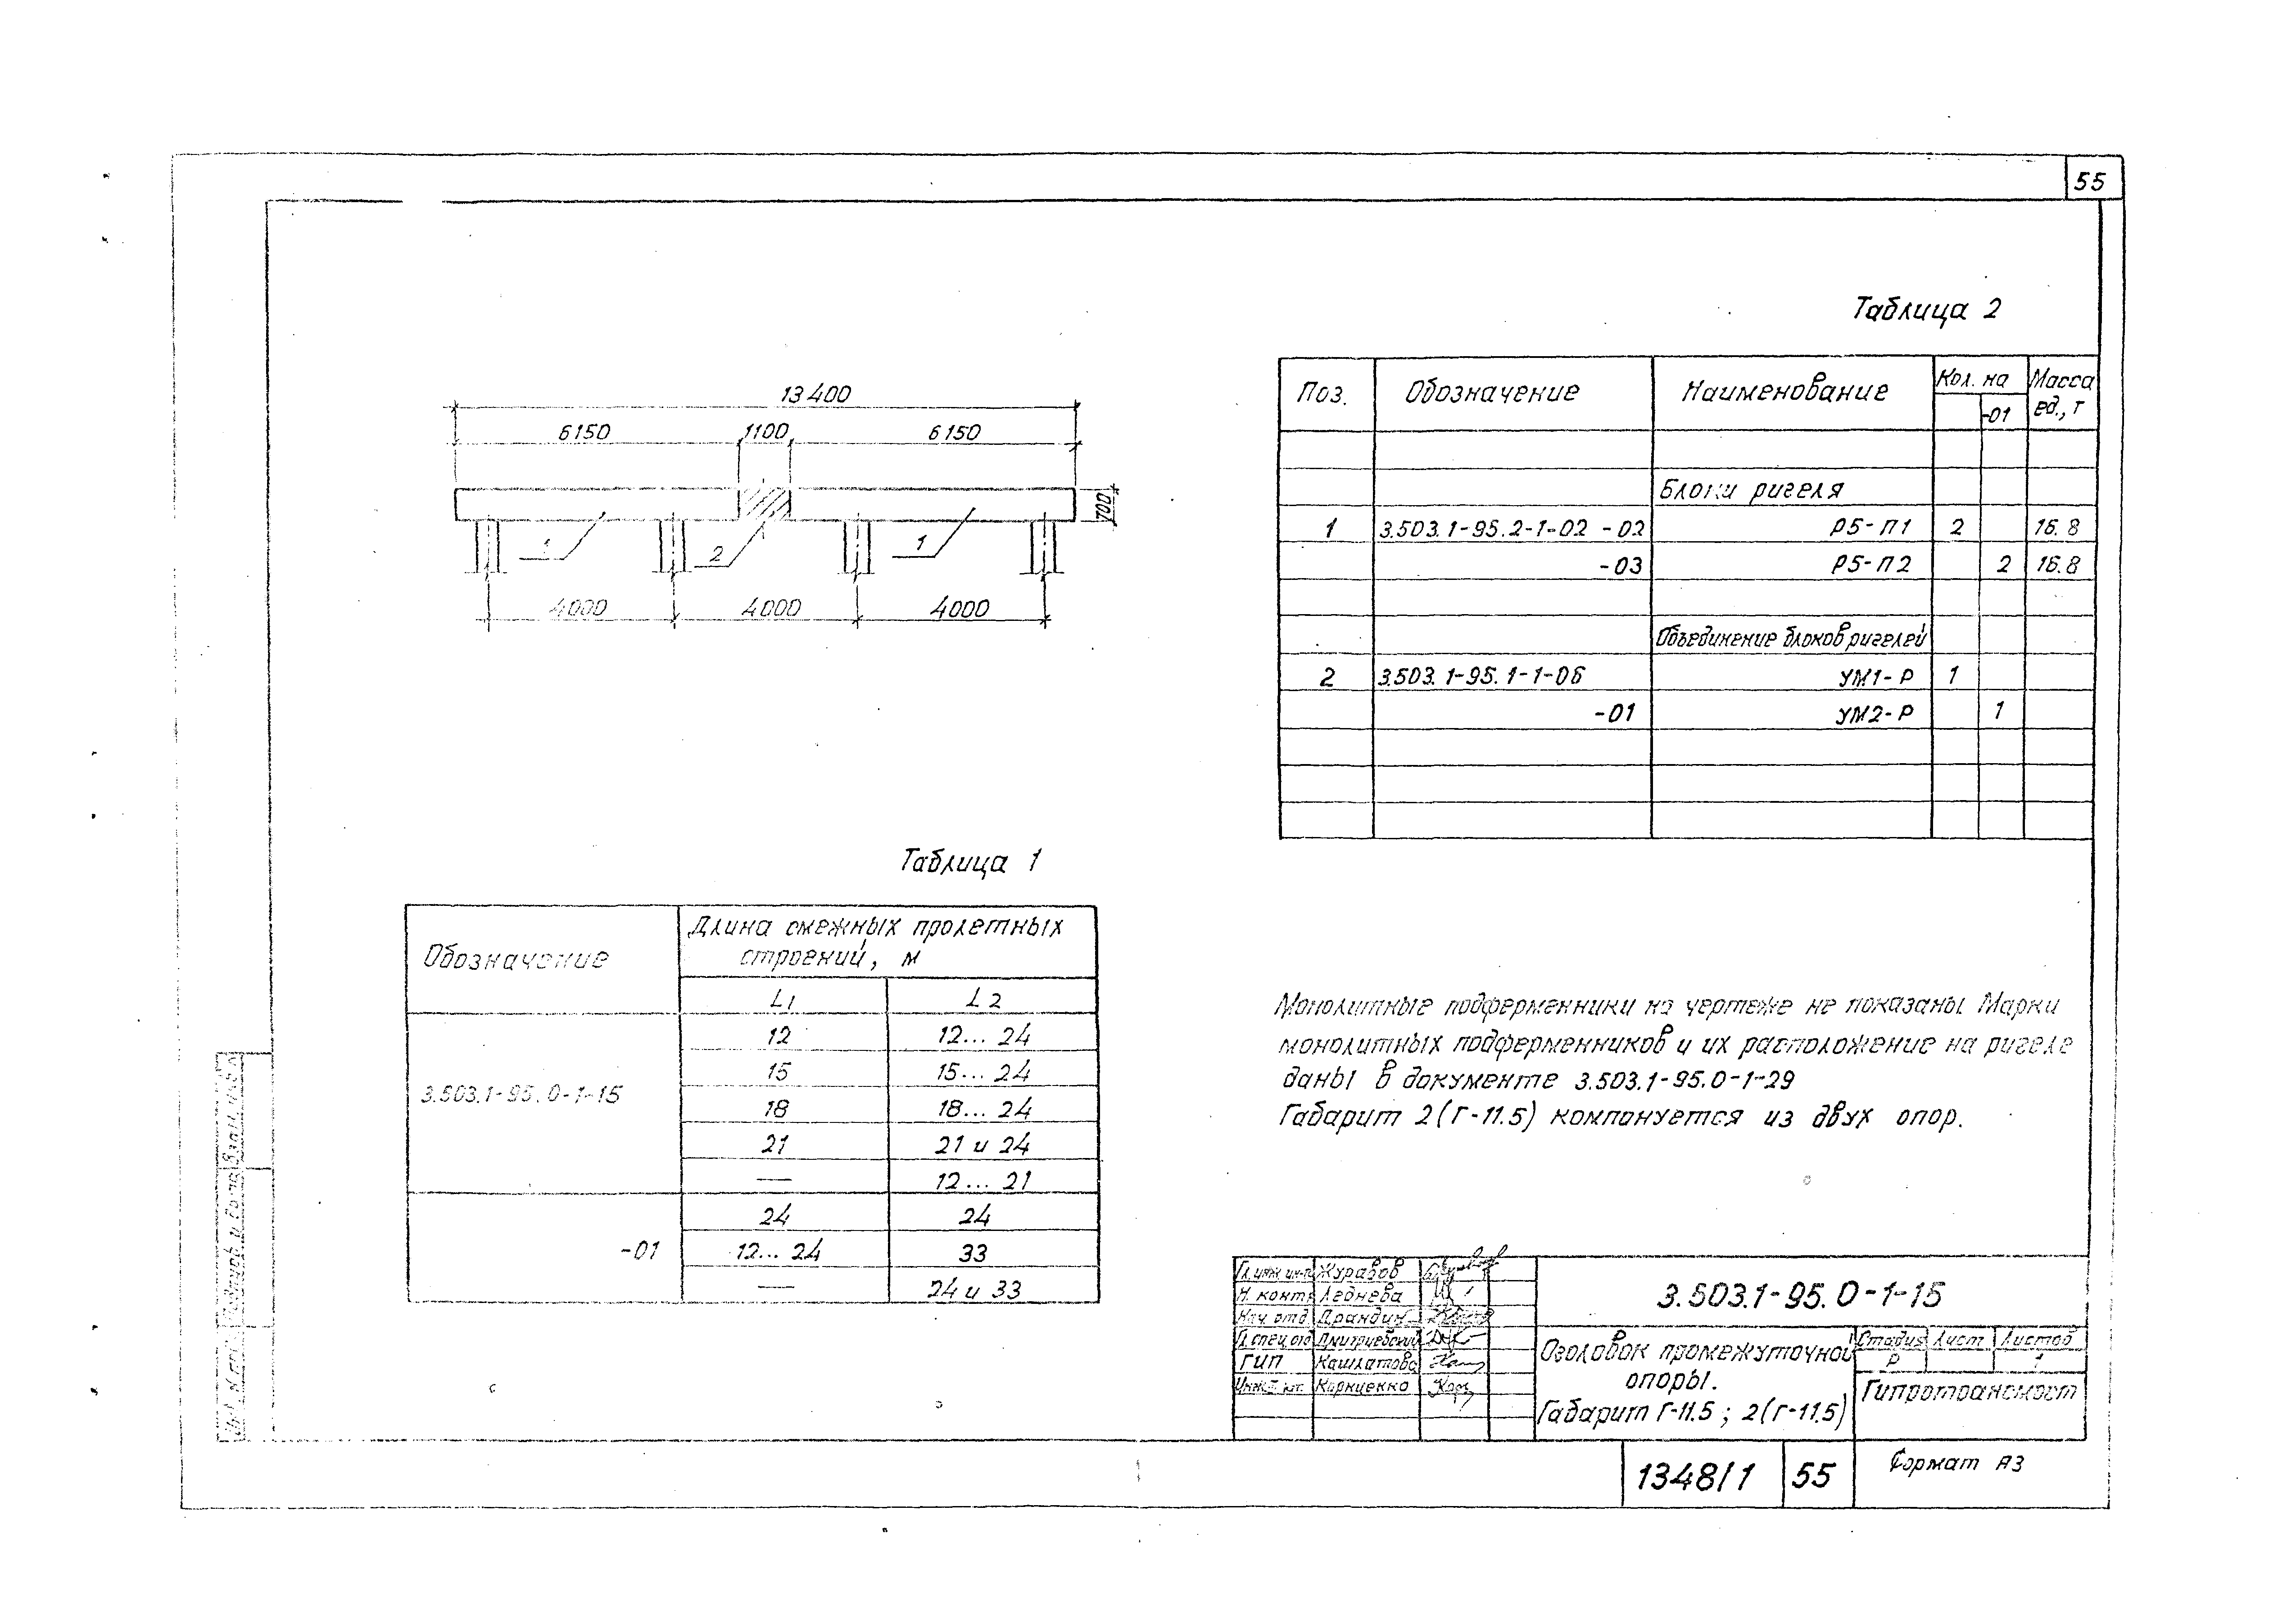 55
13400
6150 1100 6150
700
1 2 1
4000 4000 4000
Таблица 2
Поз. Обозначение Наименование Кол. на Масса ед., т
-01
Блоки ригеля
1 3.503.1-95.2-1-02 -02 Р5-П1 2 16.8
-03 Р5-П2 2 16.8
Объединение блоков ригелей
2 3.503.1-95.1-1-06 УМ1-Р 1
-01 УМ2-Р 1
Таблица 1
Обозначение Длина смежных пролетных
строений, м
L1 L2
3.503.1-95.0-1-15
12 12... 24
15 15... 24
18 18... 24
21 21 и 24
— 12... 21
-01
24 24
12... 24 33
— 24 и 33
Монолитные подферменники на чертеже не показаны. Марки
монолитных подферменников и их расположение на ригеле
даны в документе 3.503.1-95.0-1-29
Габарит 2(Г-11.5) компонуется из двух опор.
Гл. инж. ин-та Журавов
Н. контр. Леднева
Нач. отд. Драндин
Гл. спец. отд Дмитриевский
ГИП Кашлатова
Корниенко
3.503.1-95.0-1-15
Оголовок промежуточной
опоры.
Габарит Г-11.5 ; 2(Г-11.5)
Стадия Лист Листов
Р 1
Гипротрансмост
Взам. инв. №
Подпись и дата
1348/1 55 Формат А3